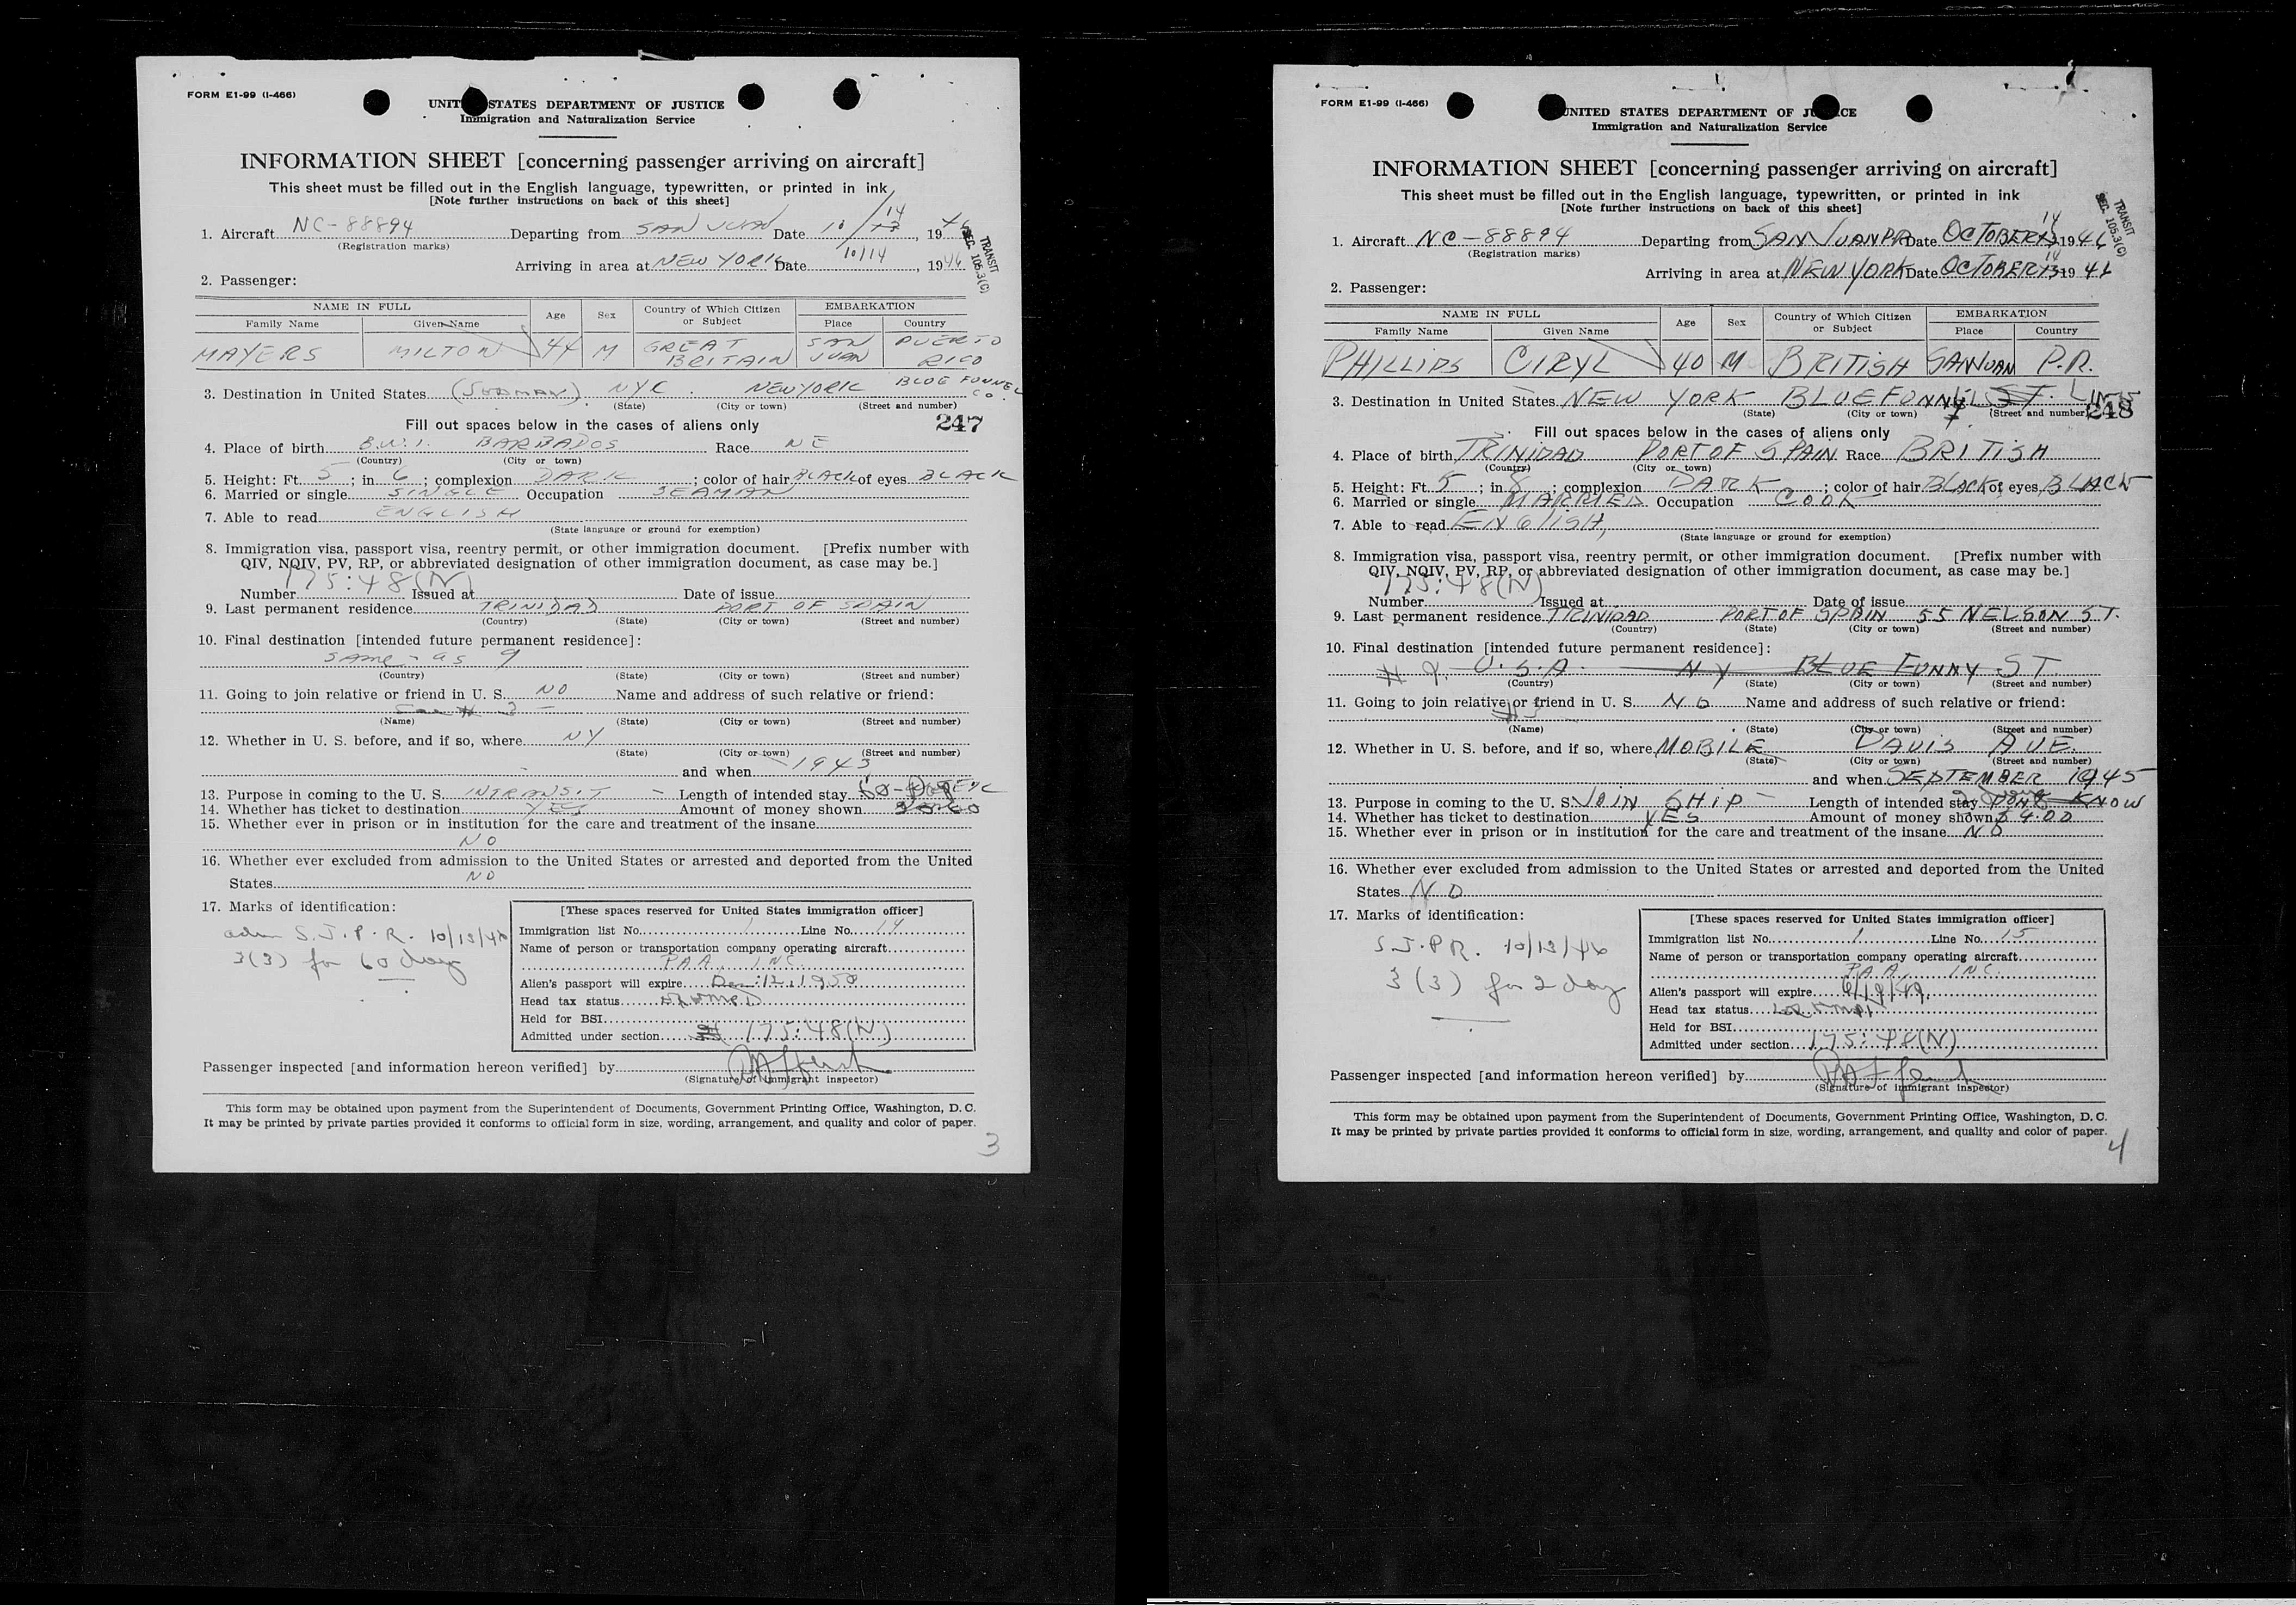 FORM E1-99 (I-466)
UNITED STATES DEPARTMENT OF JUSTICE
Immigration and Naturalization Service
INFORMATION SHEET [concerning passenger arriving on aircraft]
This sheet must be filled out in the English language, typewritten, or printed in ink
[Note further instructions on back of this sheet]
TRANSIT
SEC. 105.3(C)
1. Aircraft NC-88894 Departing from SAN JUAN Date 10/14, 1946
(Registration marks)
Arriving in area at NEW YORK Date 10/14, 1946
2. Passenger:
NAME IN FULL Age Sex Country of Which Citizen or Subject EMBARKATION
Family Name Given Name Place Country
MAYERS MILTON 44 M GREAT BRITAIN SAN JUAN PUERTO RICO
3. Destination in United States (SEAMAN) NYC. NEW YORK BLUE FUNNEL CO.
(State) (City or town) (Street and number)
Fill out spaces below in the cases of aliens only 247
4. Place of birth B.W.I. BARBADOS Race NE
(Country) (City or town)
5. Height: Ft. 5; in 6; complexion DARK; color of hair BLACK of eyes BLACK
6. Married or single SINGLE Occupation SEAMAN
7. Able to read ENGLISH
(State language or ground for exemption)
8. Immigration visa, passport visa, reentry permit, or other immigration document. [Prefix number with
QIV, NQIV, PV, RP, or abbreviated designation of other immigration document, as case may be.]
175:48(N)
Number Issued at Date of issue
9. Last permanent residence TRINIDAD PORT OF SPAIN
(Country) (State) (City or town) (Street and number)
10. Final destination [intended future permanent residence]:
same - as 9
(Country) (State) (City or town) (Street and number)
11. Going to join relative or friend in U. S. NO Name and address of such relative or friend:
See # 3 -
(Name) (State) (City or town) (Street and number)
12. Whether in U. S. before, and if so, where NY
(State) (City or town) (Street and number)
and when 1943
13. Purpose in coming to the U. S. INTRANSIT - Length of intended stay
14. Whether has ticket to destination YES Amount of money shown
15. Whether ever in prison or in institution for the care and treatment of the insane
NO
16. Whether ever excluded from admission to the United States or arrested and deported from the United
States NO
17. Marks of identification:
adm S.J.P.R. 10/13/46
3(3) for 60 days
[These spaces reserved for United States immigration officer]
Immigration list No. 1 Line No. 14
Name of person or transportation company operating aircraft
PAA INC.
Alien's passport will expire Dec. 12, 1950
Head tax status
Held for BSI
Admitted under section 175:48(N)
Passenger inspected [and information hereon verified] by
(Signature of immigrant inspector)
This form may be obtained upon payment from the Superintendent of Documents, Government Printing Office, Washington, D. C.
It may be printed by private parties provided it conforms to official form in size, wording, arrangement, and quality and color of paper.
3
FORM E1-99 (I-466)
UNITED STATES DEPARTMENT OF JUSTICE
Immigration and Naturalization Service
INFORMATION SHEET [concerning passenger arriving on aircraft]
This sheet must be filled out in the English language, typewritten, or printed in ink
[Note further instructions on back of this sheet]
TRANSIT
SEC. 105.3(C)
1. Aircraft NC-88894 Departing from SAN JUAN PR Date OCTOBER 14 1946
(Registration marks)
Arriving in area at NEW YORK Date OCTOBER 14 1946
2. Passenger:
NAME IN FULL Age Sex Country of Which Citizen or Subject EMBARKATION
Family Name Given Name Place Country
PHILLIPS CIRYL 40 M BRITISH SAN JUAN P.R.
3. Destination in United States NEW YORK BLUE FUNNEL ST. LINE
(State) (City or town) (Street and number)
248
Fill out spaces below in the cases of aliens only
4. Place of birth TRINIDAD PORT OF SPAIN Race BRITISH
(Country) (City or town)
5. Height: Ft. 5; in 8; complexion DARK; color of hair BLACK of eyes BLACK
6. Married or single MARRIED Occupation COOK
7. Able to read ENGLISH,
(State language or ground for exemption)
8. Immigration visa, passport visa, reentry permit, or other immigration document. [Prefix number with
QIV, NQIV, PV, RP, or abbreviated designation of other immigration document, as case may be.]
175:48(N)
Number Issued at Date of issue
9. Last permanent residence TRINIDAD PORT OF SPAIN 55 NELSON ST.
(Country) (State) (City or town) (Street and number)
10. Final destination [intended future permanent residence]:
# 9. U.S.A. NY BLUE FUNNY ST.
(Country) (State) (City or town) (Street and number)
11. Going to join relative or friend in U. S. NO Name and address of such relative or friend:
#3
(Name) (State) (City or town) (Street and number)
12. Whether in U. S. before, and if so, where MOBILE DAVIS AVE.
(State) (City or town) (Street and number)
and when SEPTEMBER 1945
13. Purpose in coming to the U. S. JOIN SHIP - Length of intended stay 2 days DONT KNOW
14. Whether has ticket to destination YES Amount of money shown $4.00
15. Whether ever in prison or in institution for the care and treatment of the insane NO
16. Whether ever excluded from admission to the United States or arrested and deported from the United
States NO
17. Marks of identification:
S.J.P.R. 10/13/46
3(3) for 2 days
[These spaces reserved for United States immigration officer]
Immigration list No. 1 Line No. 15
Name of person or transportation company operating aircraft
P.A.A. INC.
Alien's passport will expire 6/19/49.
Head tax status
Held for BSI
Admitted under section 175:48(N)
Passenger inspected [and information hereon verified] by
(Signature of immigrant inspector)
This form may be obtained upon payment from the Superintendent of Documents, Government Printing Office, Washington, D. C.
It may be printed by private parties provided it conforms to official form in size, wording, arrangement, and quality and color of paper.
4